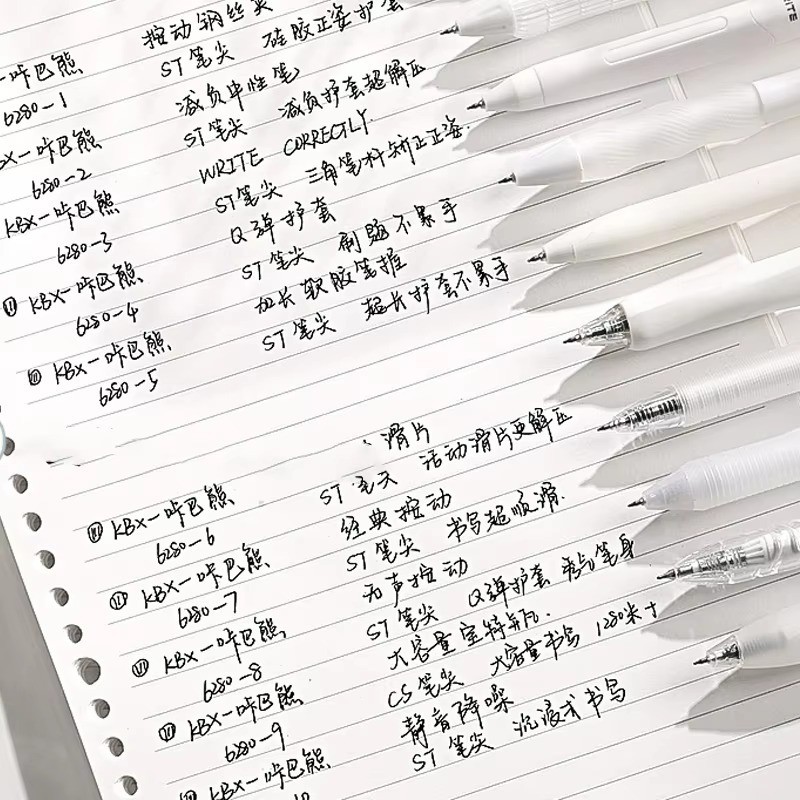 按动钢丝夹
一咔巴熊
ST笔尖 硅胶正姿护套
6280-1
减负中性笔
KBX一咔巴熊
ST笔尖 减负护套超解压
6280-2
WRITE CORRECTLY
KBX一咔巴熊
ST笔尖 三角笔杆矫正正姿
6280-3
Q弹护套
KBX一咔巴熊
ST笔尖 刷题不累手
6280-4
加长软胶笔握
KBX一咔巴熊
ST笔尖 超长护套不累手
6280-5
滑片
KBX一咔巴熊
ST 笔尖 活动滑片更解压
6280-6
经典按动
KBX一咔巴熊
ST笔尖 书写超顺滑.
6280-7
无声按动
KBX一咔巴熊
ST笔尖 Q弹护套 笔身
6280-8
大容量宝特瓶.
KBX一咔巴熊
CS笔尖 大容量书写 1280米+
6280-9
静音降噪
KBX一咔巴熊
ST笔尖 沉浸式书写
10